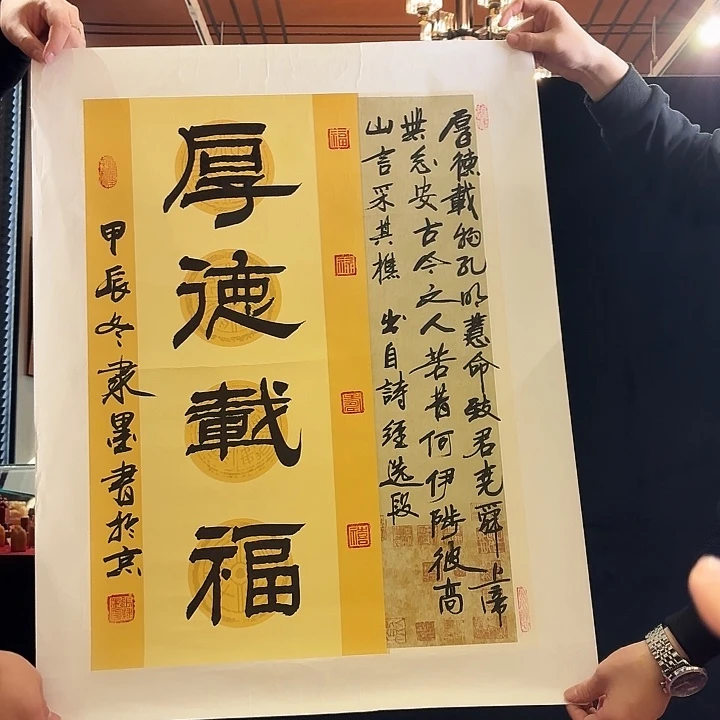 厚德載物孔明慧命致君尭舜上
安古今文人苦昔何伊陟彼高
山言采其樵 出自詩經選段
厚德載福
甲辰冬隶墨書於京